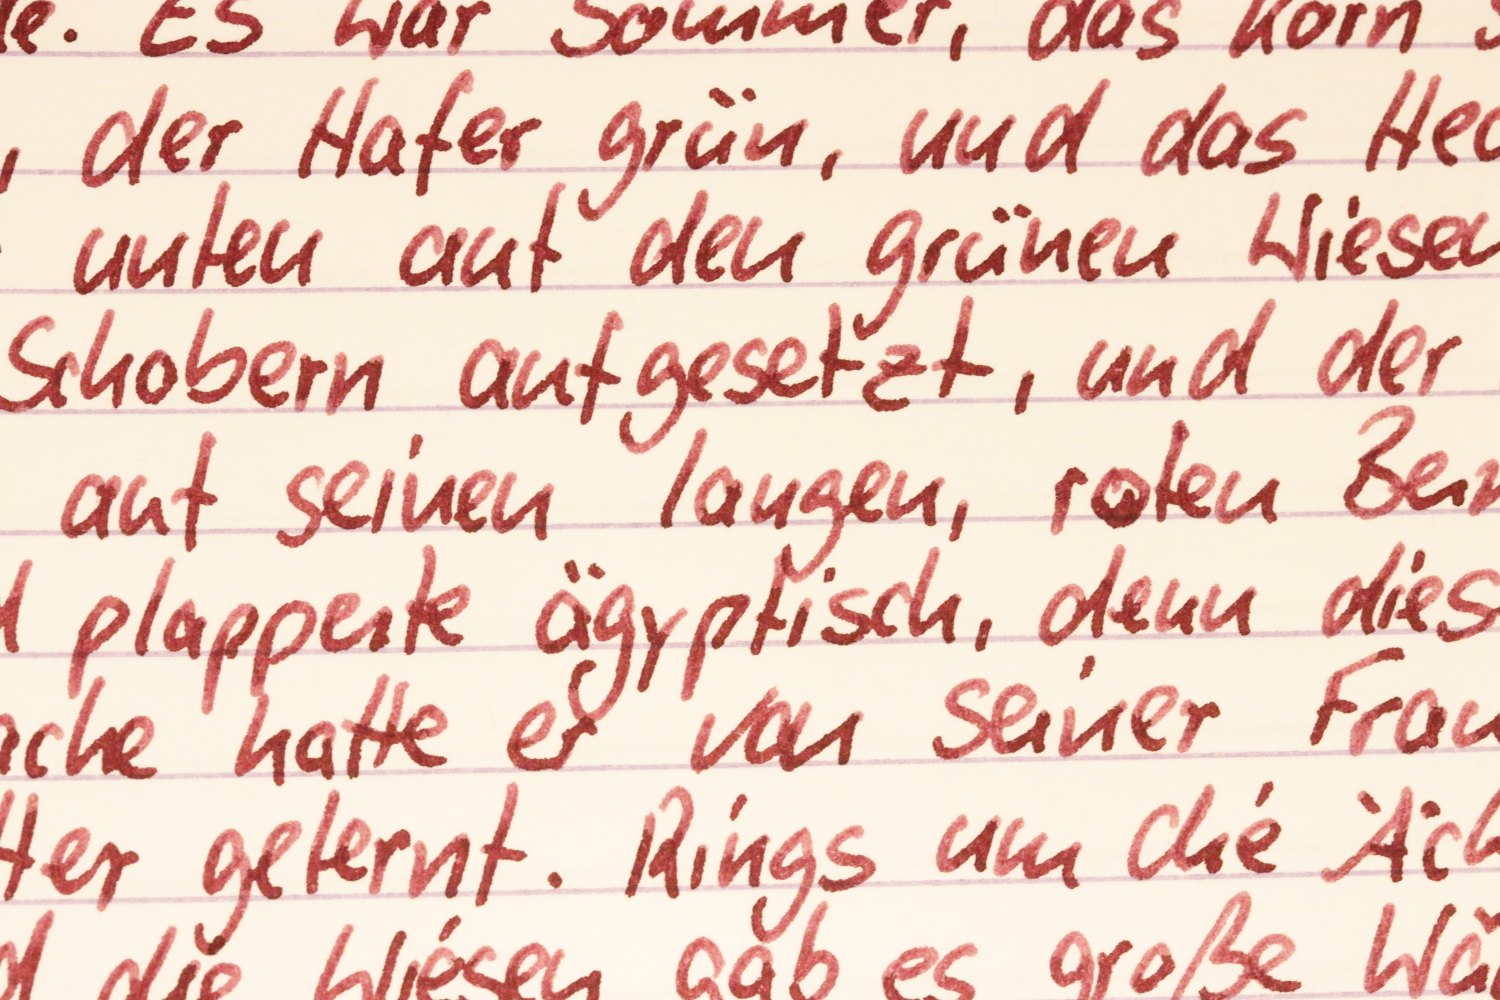 Es war Sommer, das Korn
, der Hafer grün, und das Heu
unten auf den grünen Wiesen
Schobern aufgesetzt, und der
auf seinen langen, roten Bein
plapperte ägyptisch, denn dies
ache hatte er von seiner Frau
tter gelernt. Rings um die Äck
die Wiesen gab es große Wä